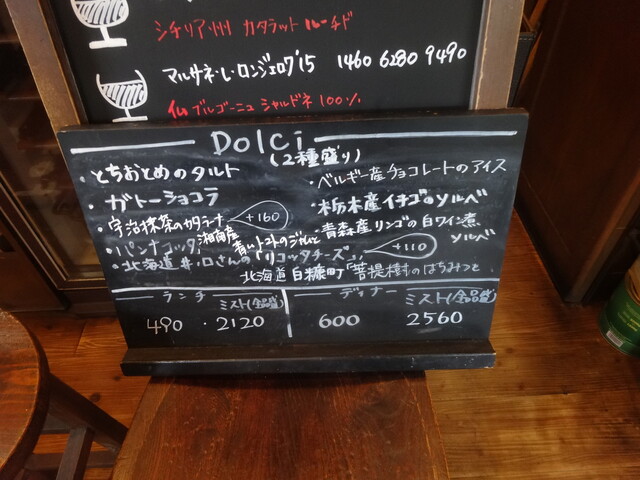 シチリア州 カタラット ルーチド
マルサネ・レ・ロンジュロワ'15 1460 6280 9490
仏 ブルゴーニュ シャルドネ 100%
Dolci
(2種盛り)
・とちおとめのタルト
・ガトーショコラ
・宇治抹茶のカタラーナ +160
・パンナコッタ 湘南産 青いトマトのジュレと
・北海道 井ノ口さんの「リコッタチーズ」 +110
北海道 白糠町「菩提樹」のはちみつと
・ベルギー産チョコレートのアイス
・栃木産イチゴのソルベ
・青森産リンゴの白ワイン煮
ソルベ
ランチ ミスト(全品盛)
490 ・2120
ディナー ミスト(全品盛)
600 2560